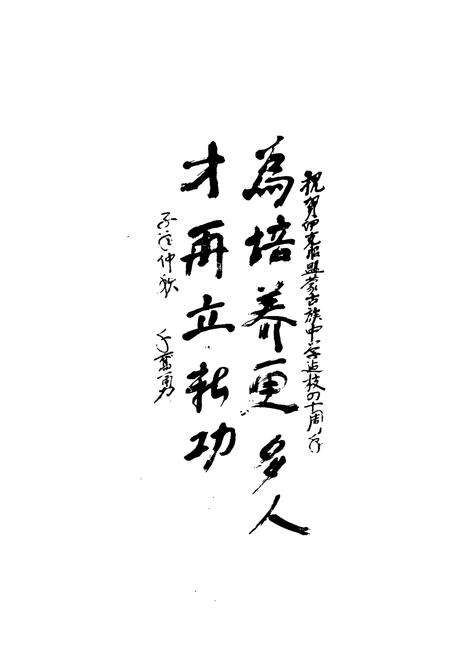 祝贺伊克昭盟蒙古族中学建校四十周年
為培养更多人
才再立新功
仲秋 奮勇